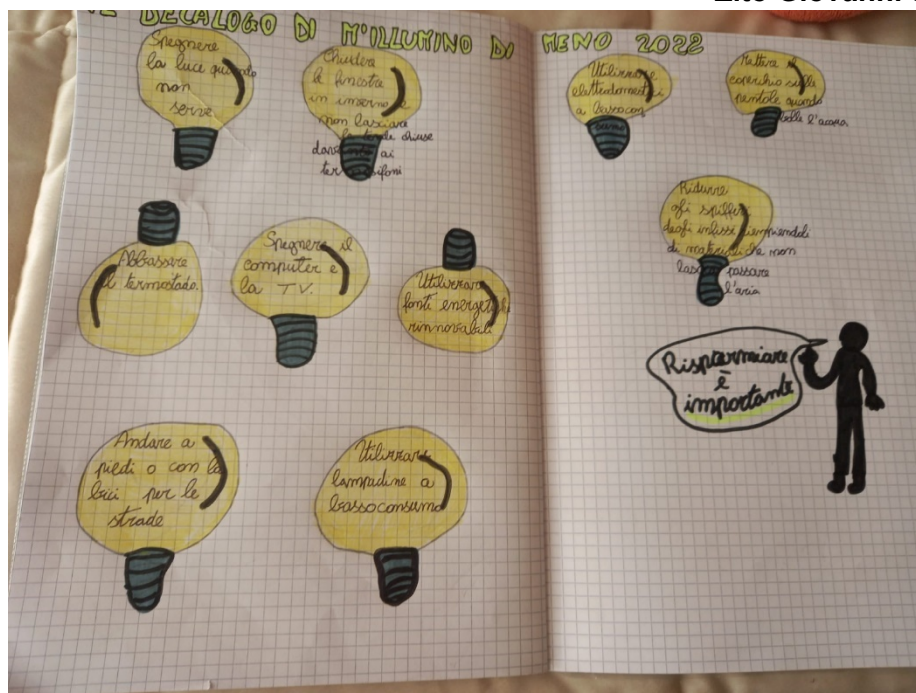 IL DECALOGO DI M'ILLUMINO DI MENO 2022
Spegnere
la luce quando
non
serve
Chiudere
le finestre
in inverno e
non lasciare
le tende chiuse
davanti ai
termosifoni
Utilizzare
elettrodomestici
a bassocon
sumo
Mettere il
coperchio sulle
pentole quando
bolle l'acqua.
Abbassare
il termostado.
Spegnere il
computer e
la TV.
Utilizzare
fonti energetiche
rinnovabili
Ridurre
gli spifferi
degli infissi riempiendoli
di materiali che non
lascia passare
l'aria
Andare a
piedi o con la
bici per le
strade
Utilizzare
lampadine a
bassoconsumo
Rispermiare
è
importante